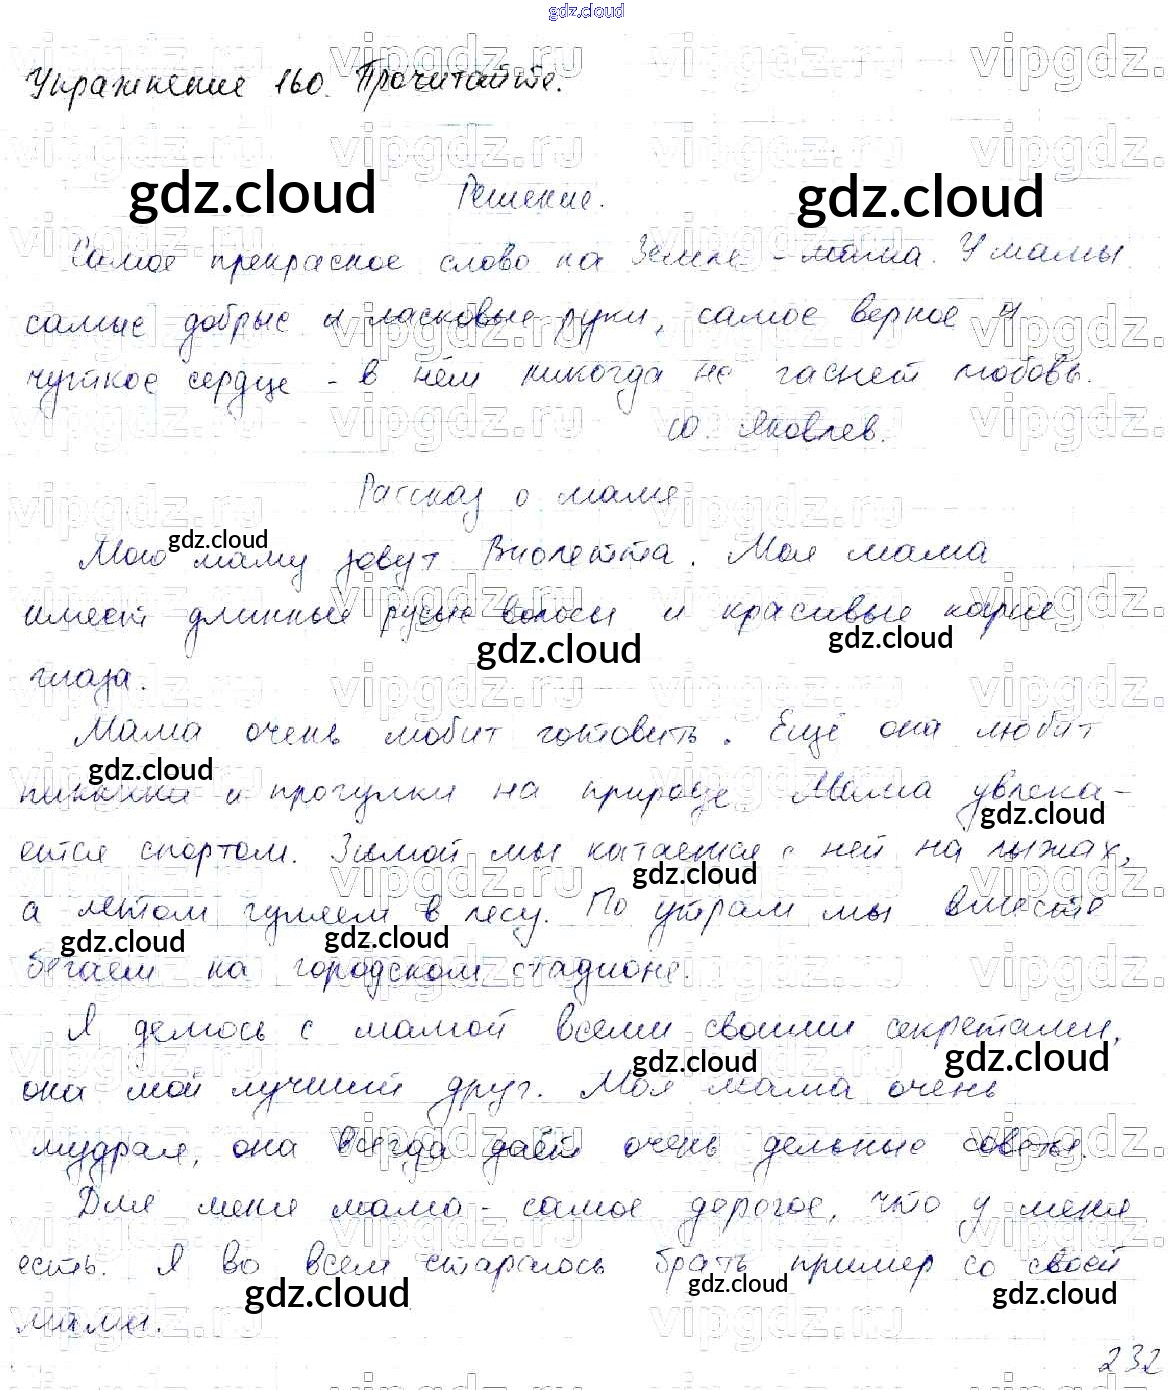 gdz.cloud
Упражнение 160. Прочитайте.
gdz.cloud Решение. gdz.cloud
Самое прекрасное слово на Земле - мама. У мамы
самые добрые и ласковые руки, самое верное и
чуткое сердце - в нём никогда не гаснет любовь.
Ю. Яковлев.
Рассказ о маме
gdz.cloud
Мою маму зовут Виолетта. Моя мама
имеет длинные русые волосы и красивые карие
gdz.cloud gdz.cloud
глаза.
Мама очень любит готовить. Ещё она любит
gdz.cloud
пикники и прогулки на природе. Мама увлека-
gdz.cloud
ется спортом. Зимой мы катаемся с ней на лыжах,
gdz.cloud
а летом гуляем в лесу. По утрам мы вместе
gdz.cloud gdz.cloud
бегаем на городском стадионе.
Я делюсь с мамой всеми своими секретами,
gdz.cloud gdz.cloud
она мой лучший друг. Моя мама очень
мудрая, она всегда даёт очень дельные советы.
Для меня мама - самое дорогое, что у меня
есть. Я во всем стараюсь брать пример со своей
gdz.cloud gdz.cloud gdz.cloud
мамы.
232
vipgdz.ru